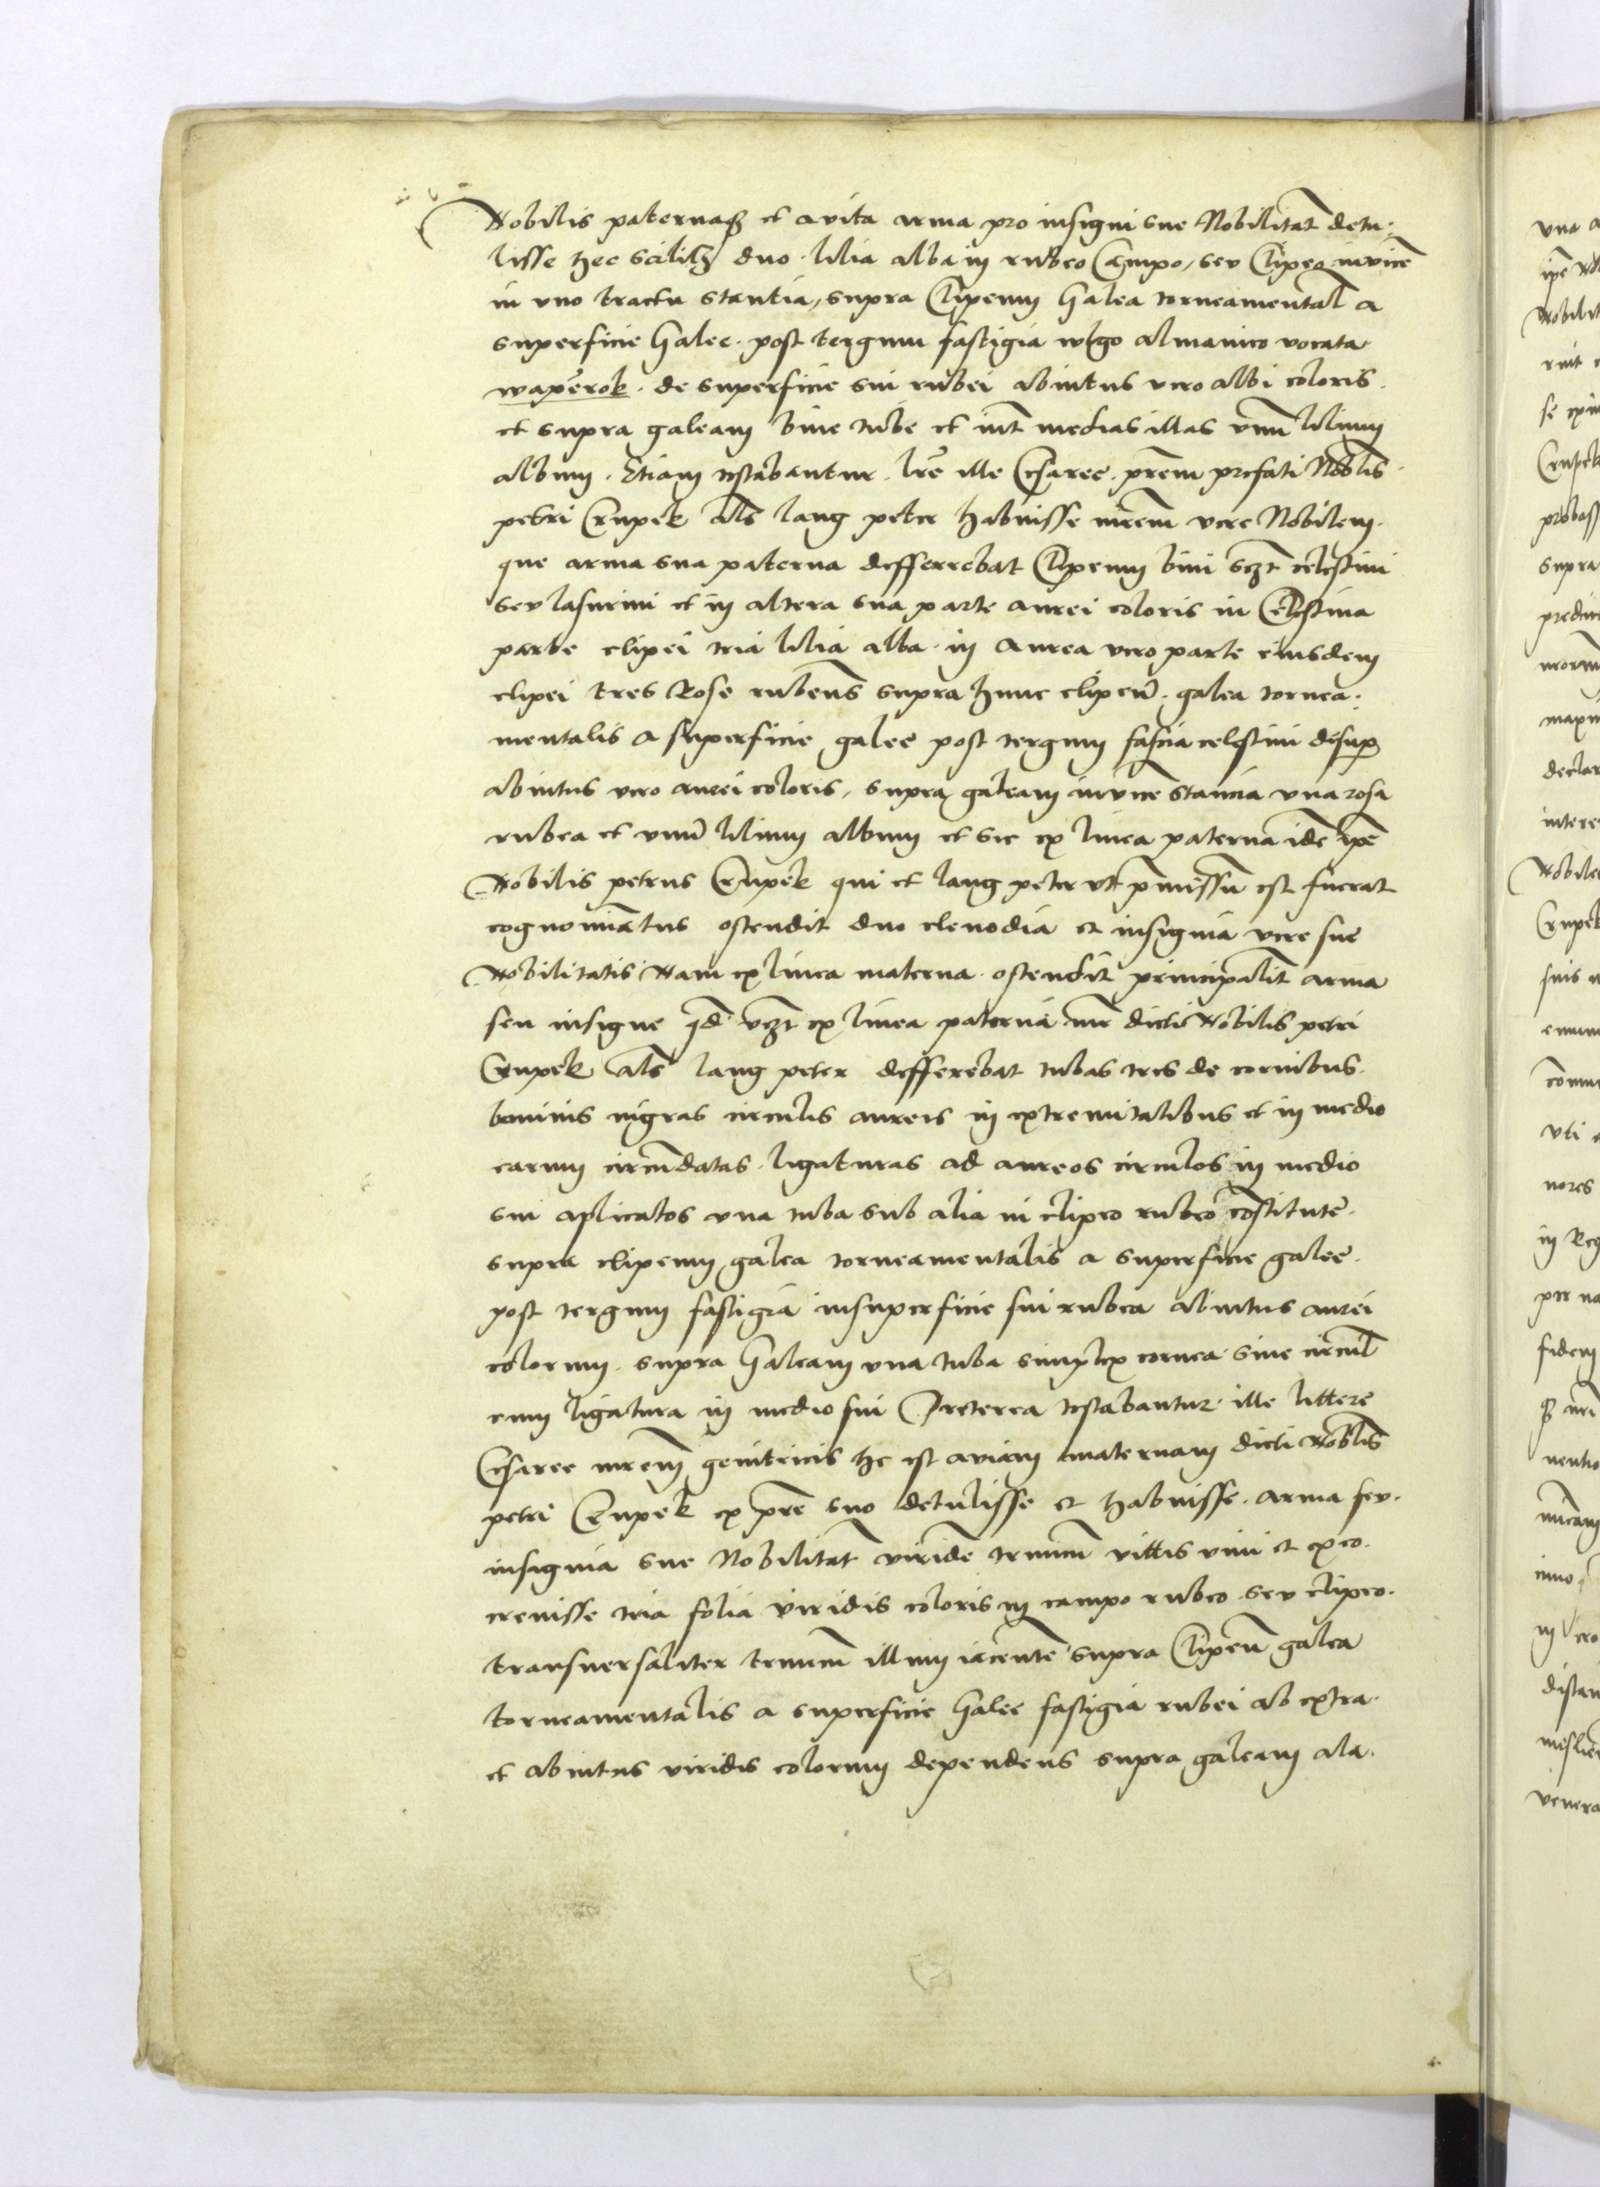 Nobilis paternaq₃ et avita arma pro insigni sue Nobilitat̄ detu-
lisse hec scilic₃ duo lilia alba in rubeo Campo, seu Clipeo invicē
in uno tractu stantia, supra Clipeum Galea torneamental̄ a
superficie Galee. post tergum fastigia wlgo almanico vocata
wapērok. de superficie sui rubei abintus vero albi coloris.
et supra galeam bine tube et int̄ medias illas unū lilium
album. Etiam testabantur. lr̄e ille Cesaree. pr̄em prefati Nobl̄is.
petri Crupek al̄s lang peter habuisse mr̄em vere Nobilem.
que arma sua paterna defferrebat Clipeum bini sc₃t celestini
seu lasurini et in altera sua parte aurei coloris in Celestina
parte clipei tria lilia alba. in aurea vero parte eiusdem
clipei tres Rose rubens̄ supra hunc clipeū. galea tornea-
mentalis a superficie galee post tergum fascia celestini desup
abintus vero aurei coloris, supra galeam invicē stancia una rosa
rubea et unū lilium album et sic ex linea paterna idē ip̄e
Nobilis petrus Crupek qui et lang peter ut p̄missū est fuerat
cognominatus ostendit duo clenodia et insignia vere sue
Nobilitatis Nam ex linea materna. ostendit principalit̄ arma
seu insigne q̄d vc₃t ex linea paterna mr̄ dicti Nobilis petri
Crupek al̄s lang peter defferebat tubas tres de cornibus.
bovinis nigras circulis aureis in extremitatibus et in medio
earum circūdatas. ligaturas ad aureos circulos in medio
sui aplicatos una tuba sub alia in clipeo rubeo cōstitute.
supra clipeum galea torneamentalis a superficie galee.
post tergum fastigia insuperficie sui rubea abintus aurei
colorum. supra Galeam una tuba simplex cornea sine circul̄
cum ligatura in medio sui Preterea testabantur ille littere
Cesaree mr̄em genitricis he est aviam maternam dicti Nobl̄is
petri Crupek ex pr̄e suo detulisse et habuisse. arma seu.
insignia sue Nobilitat̄ viridē truncū vittis vini et ex eo.
crevisse tria folia viridis coloris in campo rubeo seu clipeo.
transversaliter truncū illum iacentē supra Clipeū galea
torneamentalis a superficie Galee fastigia rubei ab extra.
et abintus viridis colorum dependens supra galeam ala.